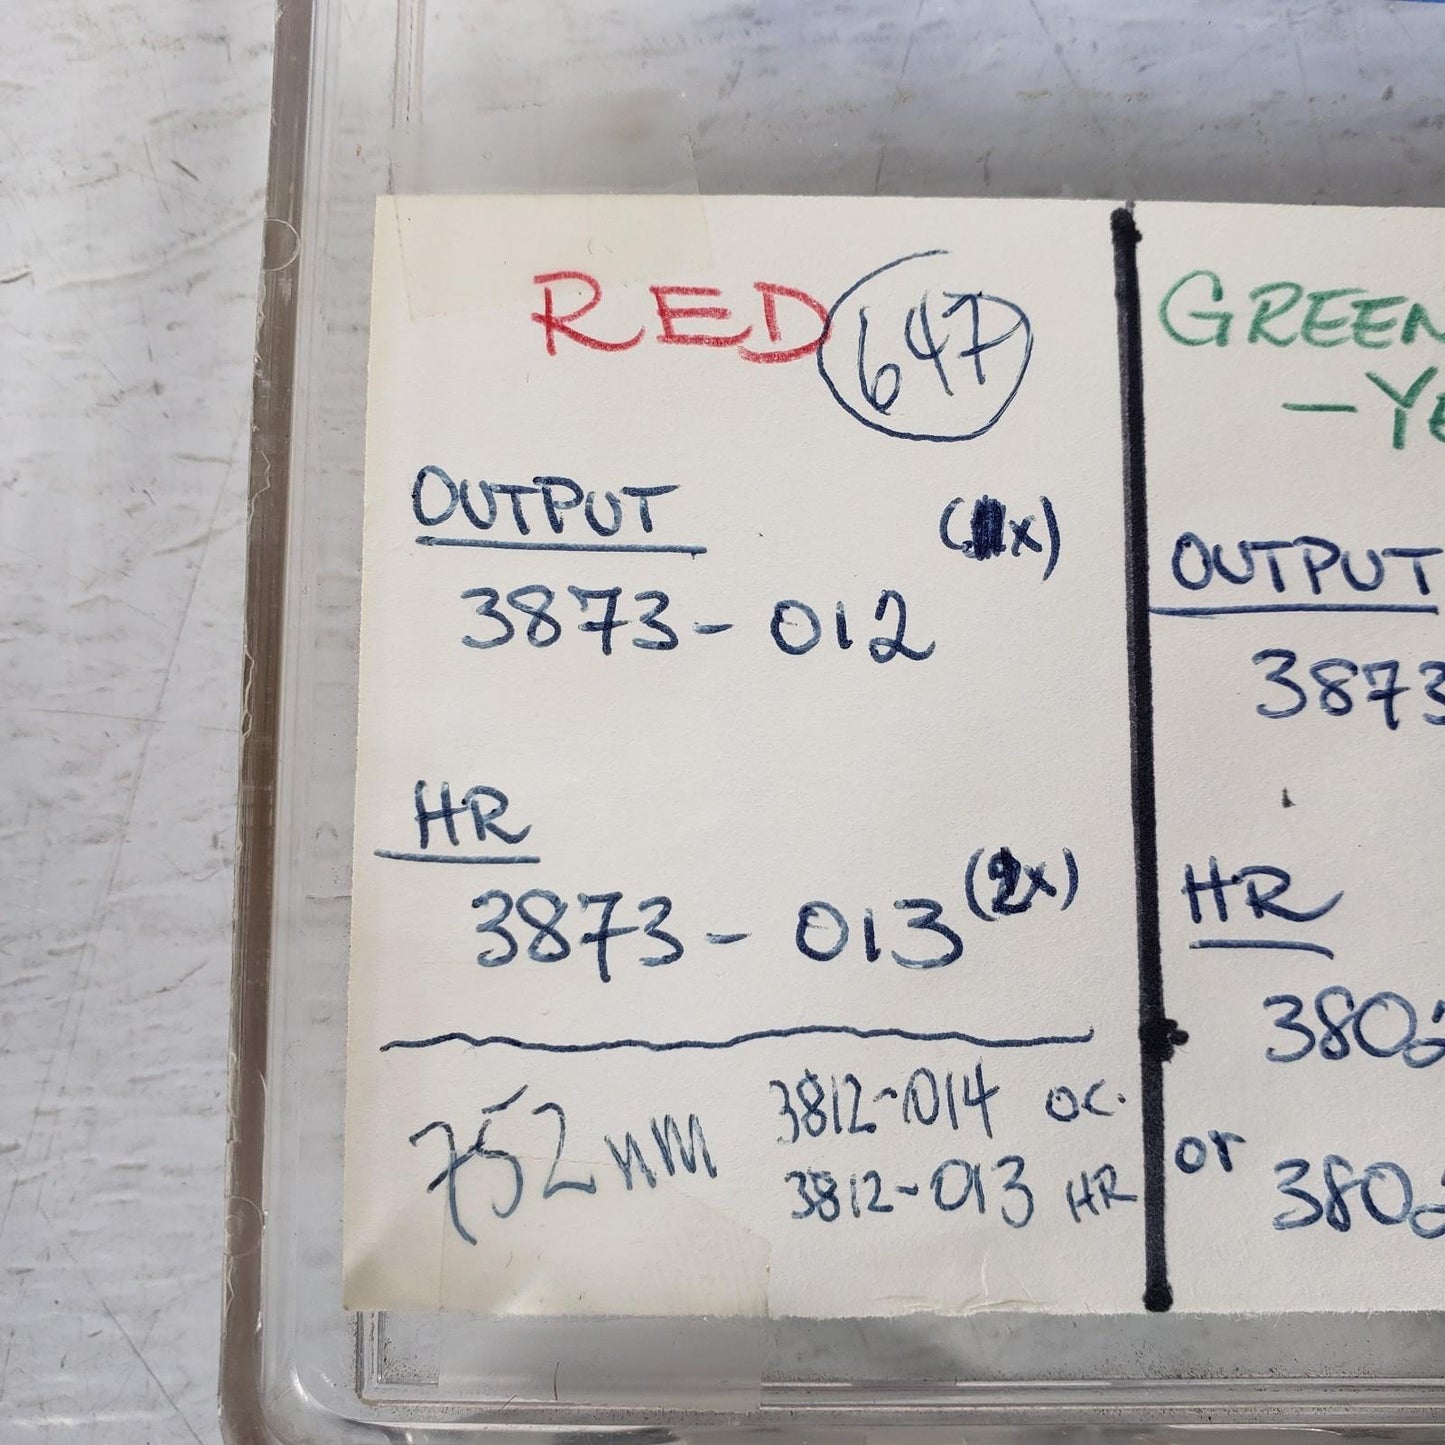 RED 647
OUTPUT (1x)
3873-012
HR
3873-013 (2x)
752 nm 3812-014 OC.
3812-013 HR
GREEN
-YE
OUTPUT
3873
HR
3802
or 3802